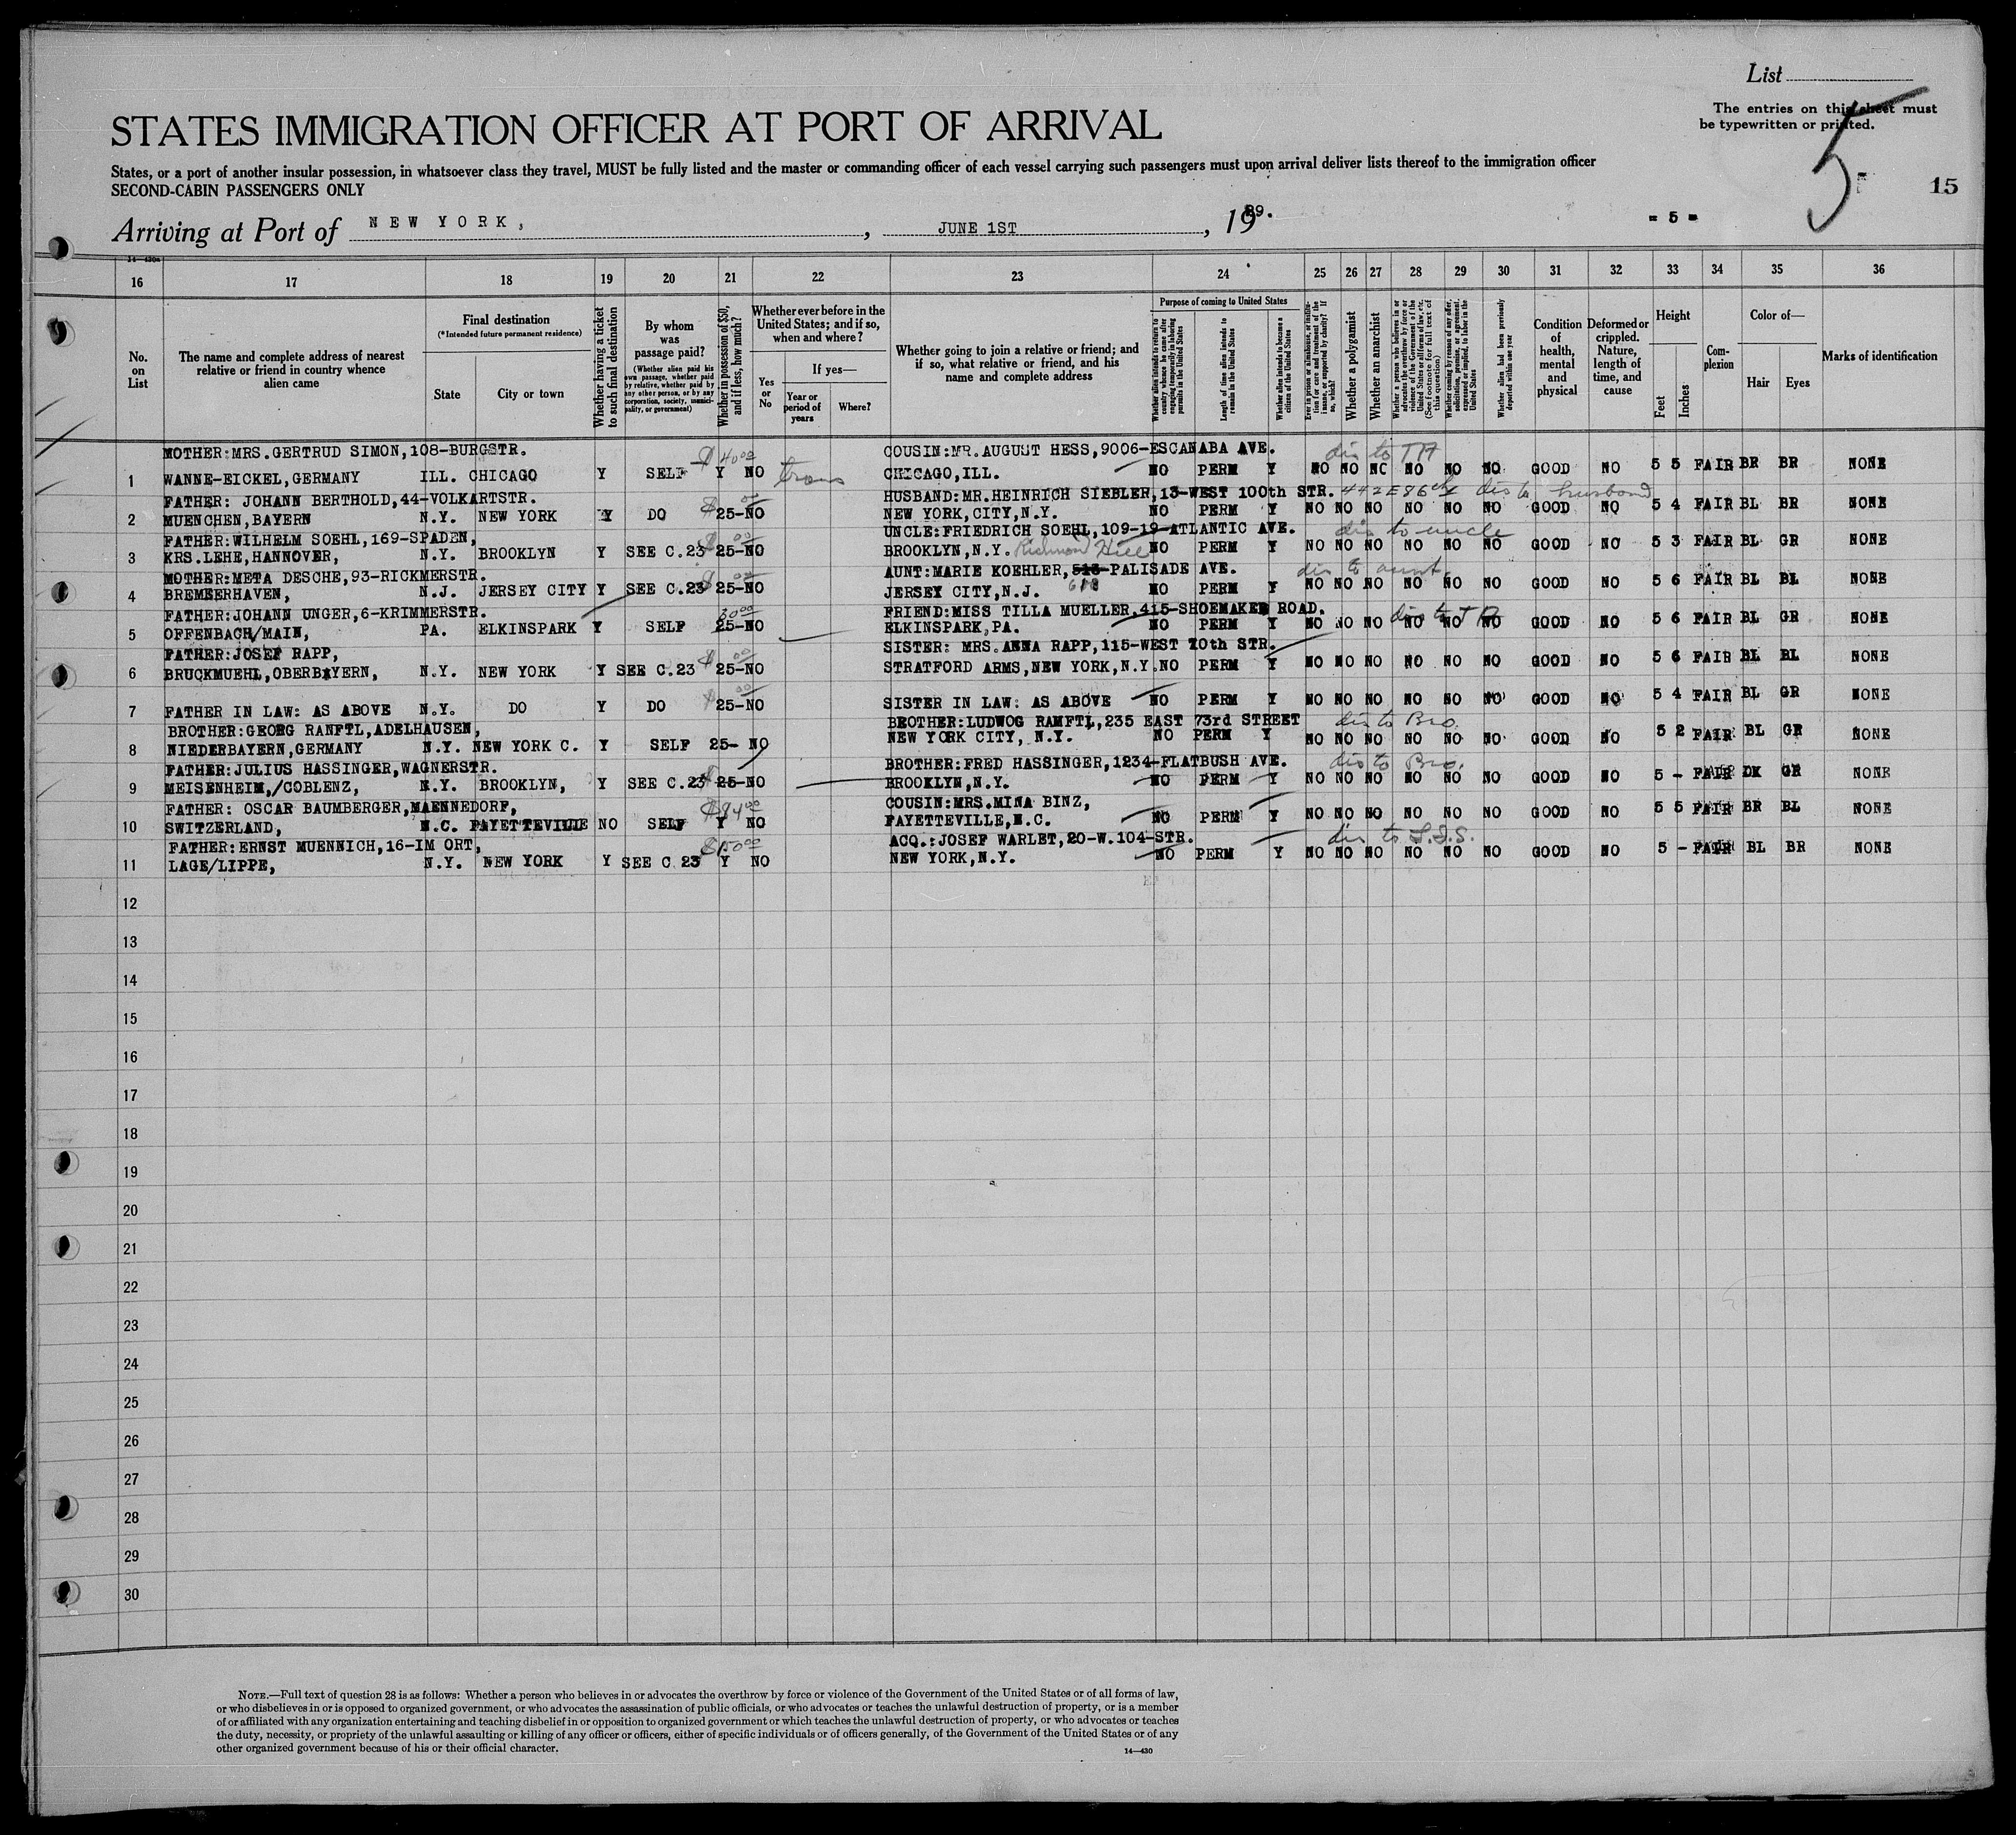 List
The entries on this sheet must
be typewritten or printed.
5
15
STATES IMMIGRATION OFFICER AT PORT OF ARRIVAL
States, or a port of another insular possession, in whatsoever class they travel, MUST be fully listed and the master or commanding officer of each vessel carrying such passengers must upon arrival deliver lists thereof to the immigration officer
SECOND-CABIN PASSENGERS ONLY
- 5 -
Arriving at Port of NEW YORK, , JUNE 1ST , 1929.
16 17 18 19 20 21 22 23 24 25 26 27 28 29 30 31 32 33 34 35 36
No. on List
The name and complete address of nearest relative or friend in country whence alien came
Final destination
(*Intended future permanent residence)
State
City or town
Whether having a ticket to such final destination
By whom was passage paid?
(Whether alien paid his own passage, whether paid by relative, whether paid by any other person, or by any corporation, society, municipality, or government)
Whether in possession of $50, and if less, how much?
Whether ever before in the United States; and if so, when and where?
Yes or No
If yes—
Year or period of years
Where?
Whether going to join a relative or friend; and if so, what relative or friend, and his name and complete address
Purpose of coming to United States
Whether alien intends to return to country whence he came after engaging temporarily in laboring pursuits in the United States
Length of time alien intends to remain in the United States
Whether alien intends to become a citizen of the United States
Ever in prison or almshouse, or institution for care and treatment of the insane, or supported by charity? If so, which?
Whether a polygamist
Whether an anarchist
Whether a person who believes in or advocates the overthrow by force or violence of the Government of the United States or all forms of law, etc. (See footnote for full text of this question)
Whether coming by reason of any offer, solicitation, promise, or agreement, expressed or implied, to labor in the United States
Whether alien had been previously deported within one year
Condition of health, mental and physical
Deformed or crippled. Nature, length of time, and cause
Height
Feet
Inches
Complexion
Color of—
Hair
Eyes
Marks of identification
MOTHER:MRS.GERTRUD SIMON,108-BURGSTR. $40 00 COUSIN:MR.AUGUST HESS,9006-ESCANABA AVE. dis to TA
1 WANNE-EICKEL,GERMANY ILL. CHICAGO Y SELF Y NO trans CHICAGO,ILL. NO PERM Y NO NO NO NO NO NO GOOD NO 5 5 FAIR BR BR NONE
FATHER: JOHANN BERTHOLD,44-VOLKARTSTR. HUSBAND:MR.HEINRICH SIEBLER,13-WEST 100th STR. 442 E 86th dis to husband
2 MUENCHEN,BAYERN N.Y. NEW YORK Y DO 25-NO NEW YORK,CITY,N.Y. NO PERM Y NO NO NO NO NO NO GOOD NO 5 4 FAIR BL BR NONE
FATHER:WILHELM SOEHL,169-SPADEN, UNCLE:FRIEDRICH SOEHL,109-19-ATLANTIC AVE. dis to uncle
3 KRS.LEHE,HANNOVER, N.Y. BROOKLYN Y SEE C.23 25-NO BROOKLYN,N.Y. Richmond Hill NO PERM Y NO NO NO NO NO NO GOOD NO 5 3 FAIR BL GR NONE
MOTHER:META DESCHE,93-RICKMERSTR. AUNT:MARIE KOEHLER,513-PALISADE AVE. dis to aunt.
4 BREMERHAVEN, N.J. JERSEY CITY Y SEE C.23 25-NO JERSEY CITY,N.J. 613 NO PERM Y NO NO NO NO NO NO GOOD NO 5 6 FAIR BL BL NONE
FATHER:JOHANN UNGER,6-KRIMMERSTR. 30 00 FRIEND:MISS TILLA MUELLER,415-SHOEMAKER ROAD. dis to TA
5 OFFENBACH/MAIN, PA. ELKINSPARK Y SELF 25-NO ELKINSPARK,PA. NO PERM Y NO NO NO NO NO NO GOOD NO 5 6 FAIR BL GR NONE
FATHER:JOSEF RAPP, SISTER: MRS.ANNA RAPP,115-WEST 70th STR.
6 BRUCKMUEHL,OBERBAYERN, N.Y. NEW YORK Y SEE C.23 25-NO STRATFORD ARMS,NEW YORK,N.Y. NO PERM Y NO NO NO NO NO NO GOOD NO 5 6 FAIR BL BL NONE
7 FATHER IN LAW: AS ABOVE N.Y. DO Y DO 25-NO SISTER IN LAW: AS ABOVE NO PERM Y NO NO NO NO NO NO GOOD NO 5 4 FAIR BL GR NONE
BROTHER:GEORG RANFTL,ADELHAUSEN, BROTHER:LUDWOG RANFTL,235 EAST 73rd STREET dis to Bro.
8 NIEDERBAYERN,GERMANY N.Y. NEW YORK C. Y SELF 25- NO NEW YORK CITY, N.Y. NO PERM Y NO NO NO NO NO NO GOOD NO 5 2 FAIR BL GR NONE
FATHER:JULIUS HASSINGER,WAGNERSTR. BROTHER:FRED HASSINGER,1234-FLATBUSH AVE. dis to Bro.
9 MEISENHEIM,/COBLENZ, N.Y. BROOKLYN, Y SEE C.23 25-NO BROOKLYN,N.Y. NO PERM Y NO NO NO NO NO NO GOOD NO 5 - FAIR DK GR NONE
FATHER: OSCAR BAUMBERGER,MAENNEDORF, $94 00 COUSIN:MRS.MINA BINZ,
10 SWITZERLAND, N.C. FAYETTEVILLE NO SELF Y NO FAYETTEVILLE,N.C. NO PERM Y NO NO NO NO NO NO GOOD NO 5 5 FAIR BR BL NONE
FATHER:ERNST MUENNICH,16-IM ORT, $150 00 ACQ.:JOSEF WARLET,20-W.104-STR. dis to
11 LAGE/LIPPE, N.Y. NEW YORK Y SEE C 23 Y NO NEW YORK,N.Y. NO PERM Y NO NO NO NO NO NO GOOD NO 5 - FAIR BL BR NONE
12
13
14
15
16
17
18
19
20
21
22
23
24
25
26
27
28
29
30
NOTE.—Full text of question 28 is as follows: Whether a person who believes in or advocates the overthrow by force or violence of the Government of the United States or of all forms of law,
or who disbelieves in or is opposed to organized government, or who advocates the assassination of public officials, or who advocates or teaches the unlawful destruction of property, or is a member
of or affiliated with any organization entertaining and teaching disbelief in or opposition to organized government or which teaches the unlawful destruction of property, or who advocates or teaches
the duty, necessity, or propriety of the unlawful assaulting or killing of any officer or officers, either of specific individuals or of officers generally, of the Government of the United States or of any
other organized government because of his or their official character.
14—430